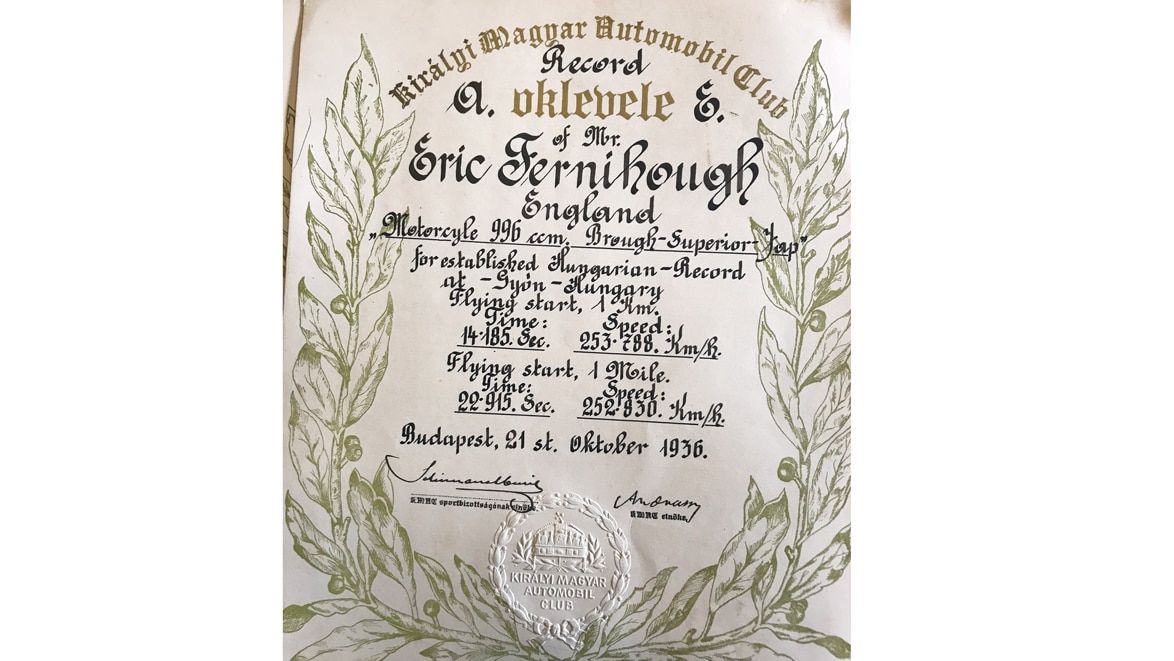 Királyi Magyar Automobil Club
Record
A. oklevele E.
of Mr.
Eric Fernihough
England
„Motorcyle 996 ccm. Brough-Superior-Jap"
for established Hungarian-Record
at -Gyón-Hungary
Flying start, 1 Km.
Time: Speed:
14·185. Sec. 253·788. Km/h.
Flying start, 1 Mile.
Time: Speed:
22·915. Sec. 252·830. Km/h.
Budapest, 21 st. Oktober 1936.
KMAC sportbizottságának elnöke.
KMAC elnöke.
KIRÁLYI MAGYAR
AUTOMOBIL
CLUB